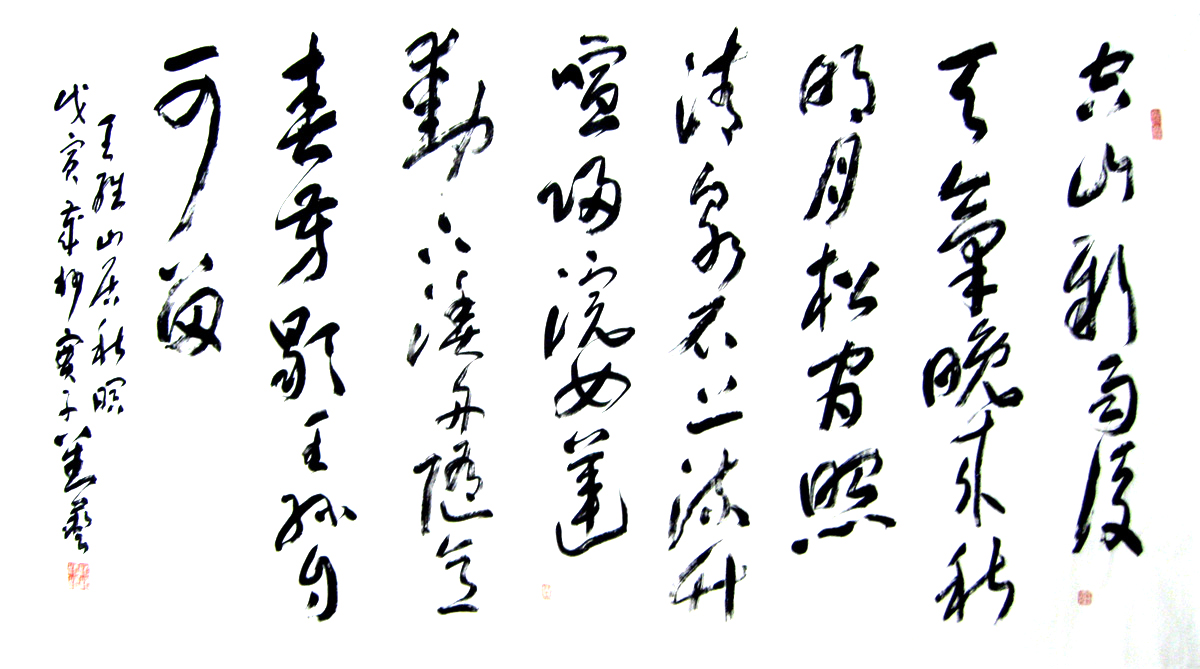 空山新雨後
天氣晚来秋
明月松間照
清泉石上流竹
喧歸浣女蓮
動下漁舟隨意
春芳歇王孫自
可留
王維山居秋暝
戊寅歲